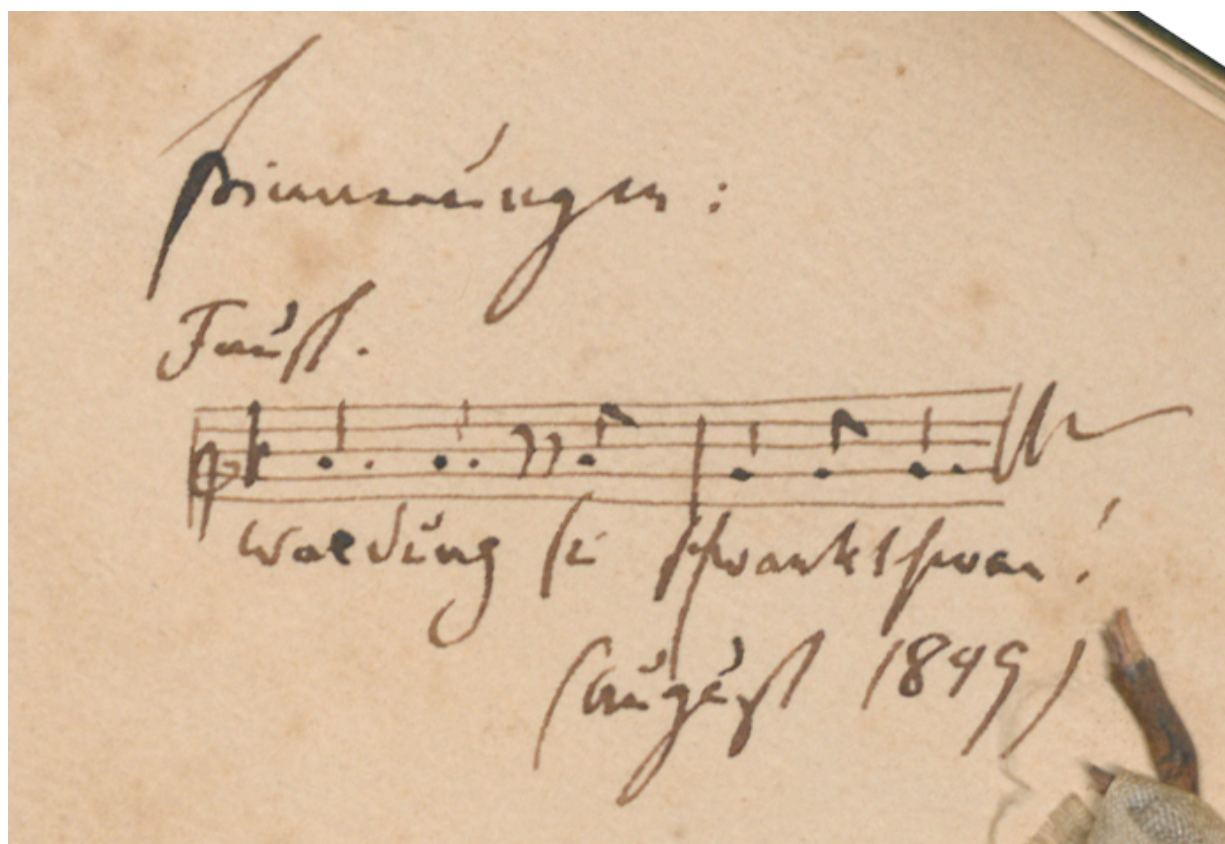 Erinnerungen:
Faust.
Waldung sie schwankt heran!
(August 1849)